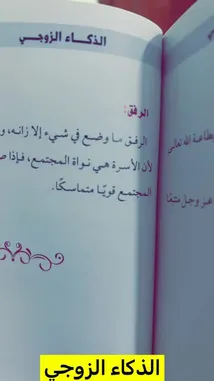 الذكاء الزوجي
الذكاء الزوجي
الرفق:
الرفق ما وضع في شيء إلا زانه، و
لأن الأسرة هي نواة المجتمع، فإذا
المجتمع قويًا متماسكًا.
طاعة الله تعالى
عز وجل
الذكاء الزوجي